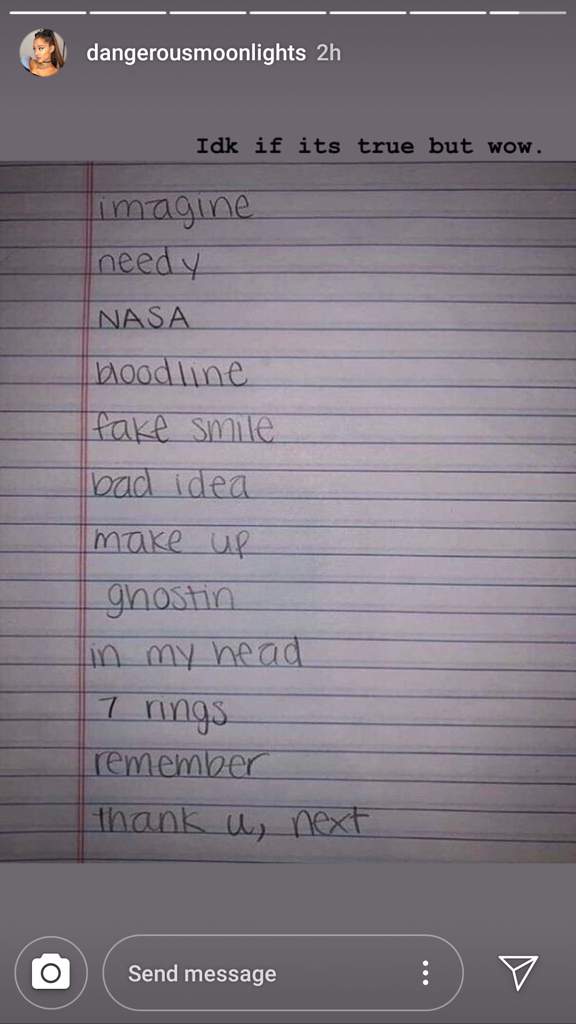 dangerousmoonlights 2h
Idk if its true but wow.
imagine
needy
NASA
bloodline
fake smile
bad idea
make up
ghostin
in my head
7 rings
remember
thank u, next
Send message